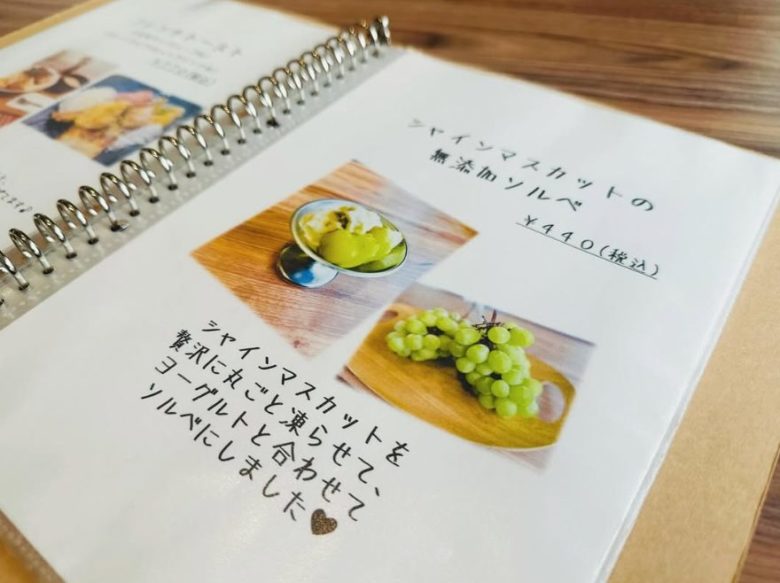 シャインマスカットの
無添加ソルベ
¥440(税込)
シャインマスカットを
贅沢に丸ごと凍らせて、
ヨーグルトと合わせて
ソルベにしました♥